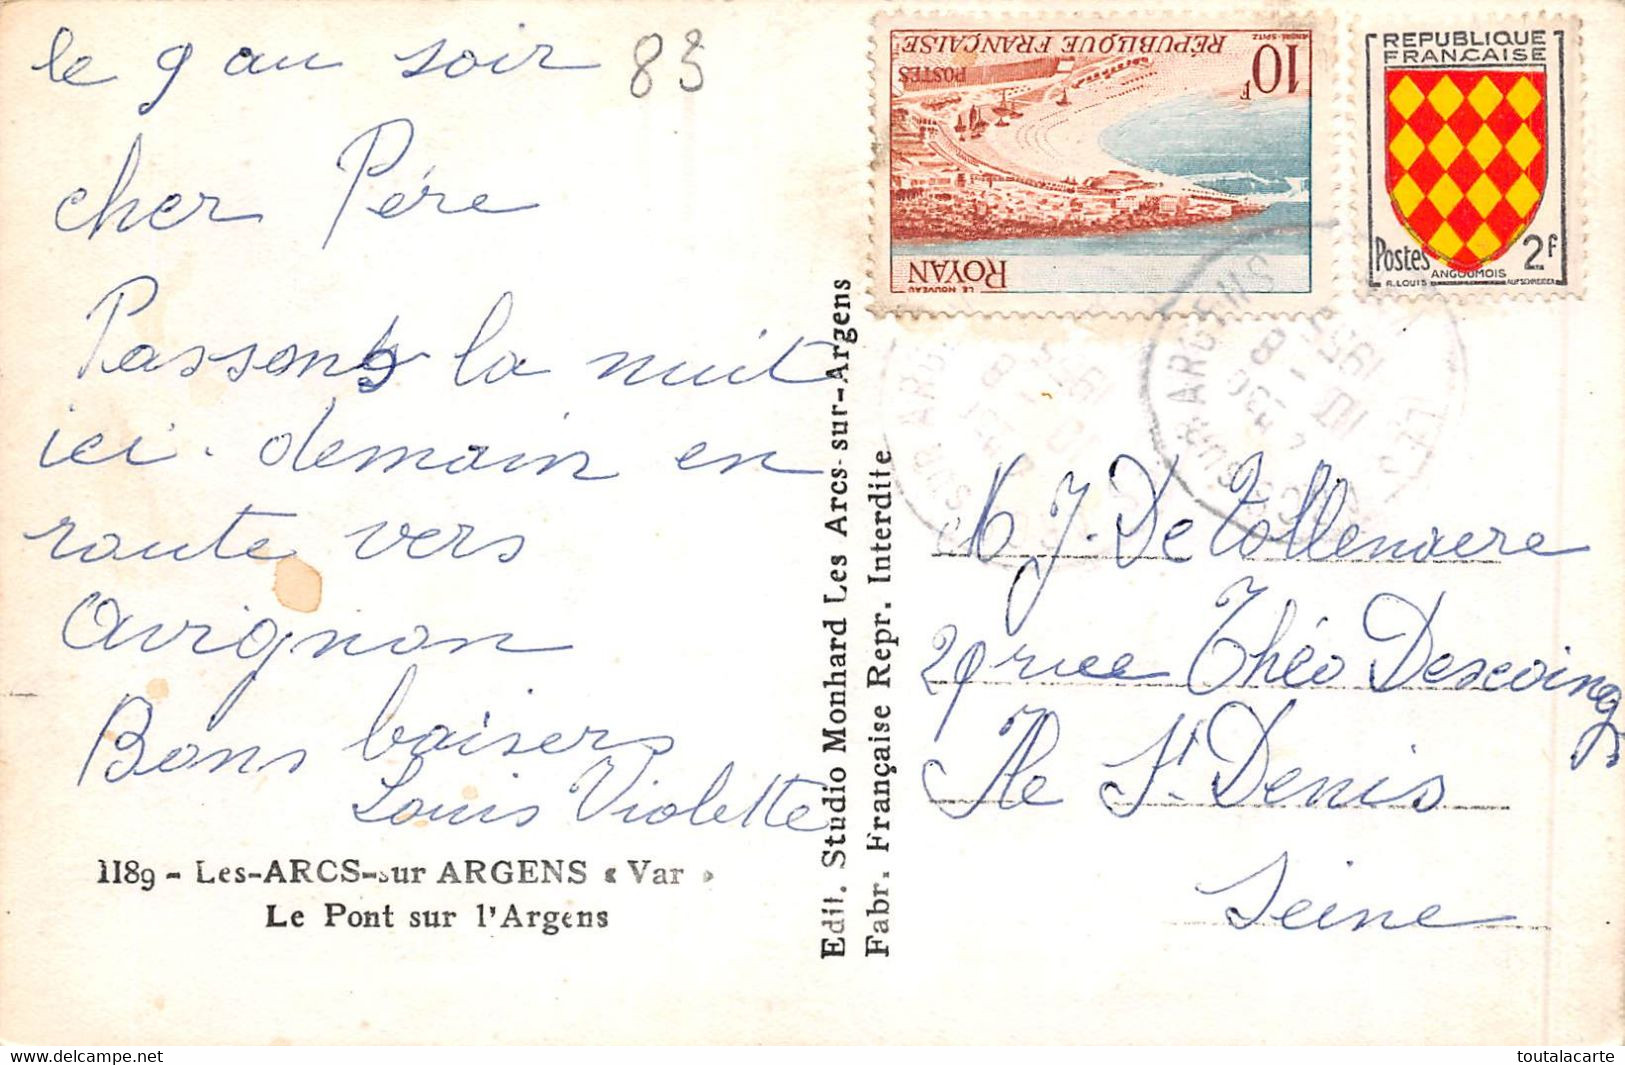 le 9 au soir
83
cher Père
Passons la nuit
ici. demain en
route vers
Avignon
Bons baisers
Louis Violette
1189 - Les-ARCS-sur ARGENS « Var »
Le Pont sur l'Argens
Edit. Studio Monhard Les Arcs-sur-Argens
Fabr. Française Repr. Interdite
10F
REPUBLIQUE FRANÇAISE
POSTES
LE NOUVEAU
ROYAN
REPUBLIQUE
FRANCAISE
Postes 2f
ANGOUMOIS
R. LOUIS
M J. De Tollenaere
29 rue Théo Descoings
Ile St Denis
Seine
toutalacarte